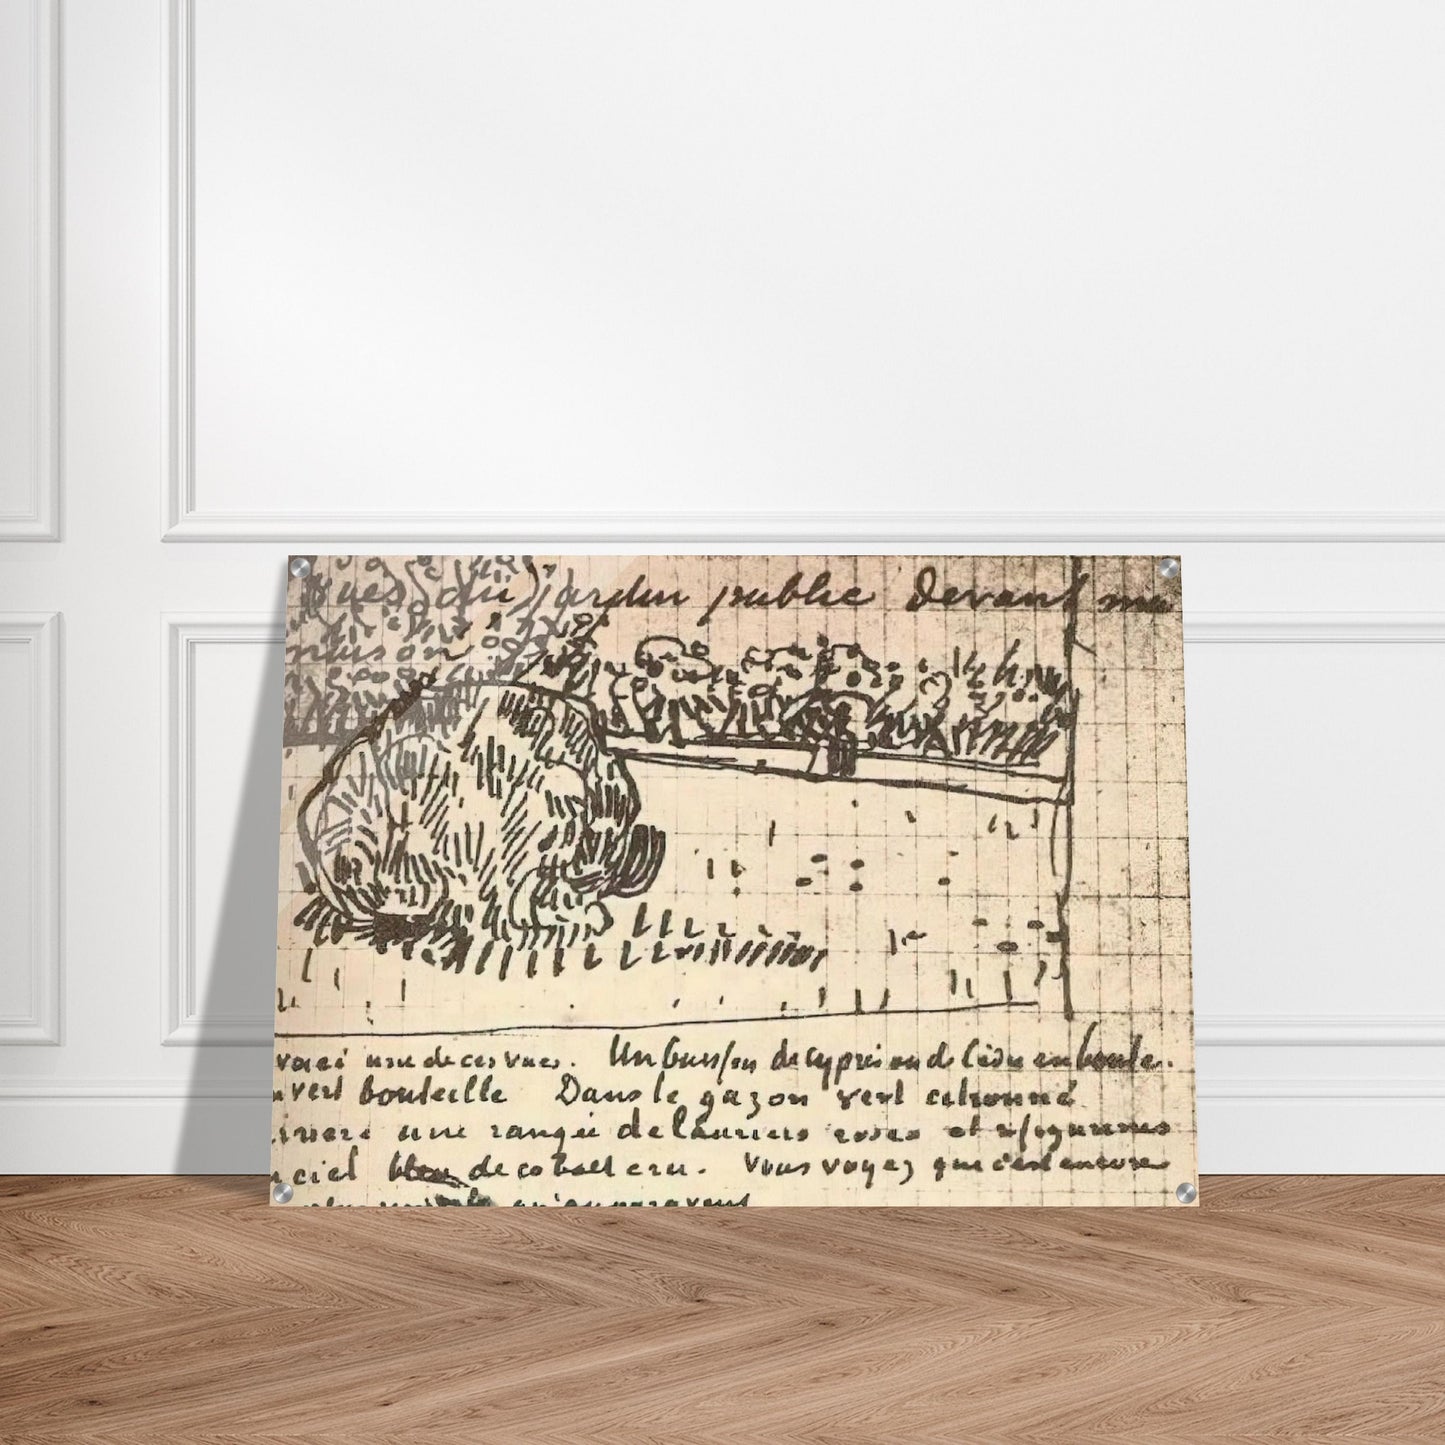 vues du jardin public devant ma
maison
voici une de ces vues. Un buisson de cyprès ou de cèdre en boule.
vert bouteille Dans le gazon vert citronné
une rangée de lauriers roses et
ciel bleu de cobalt cru. Vous voyez que c'est encore